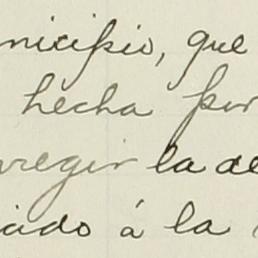 nicipio, que
hecha por
regir la de
iado á la